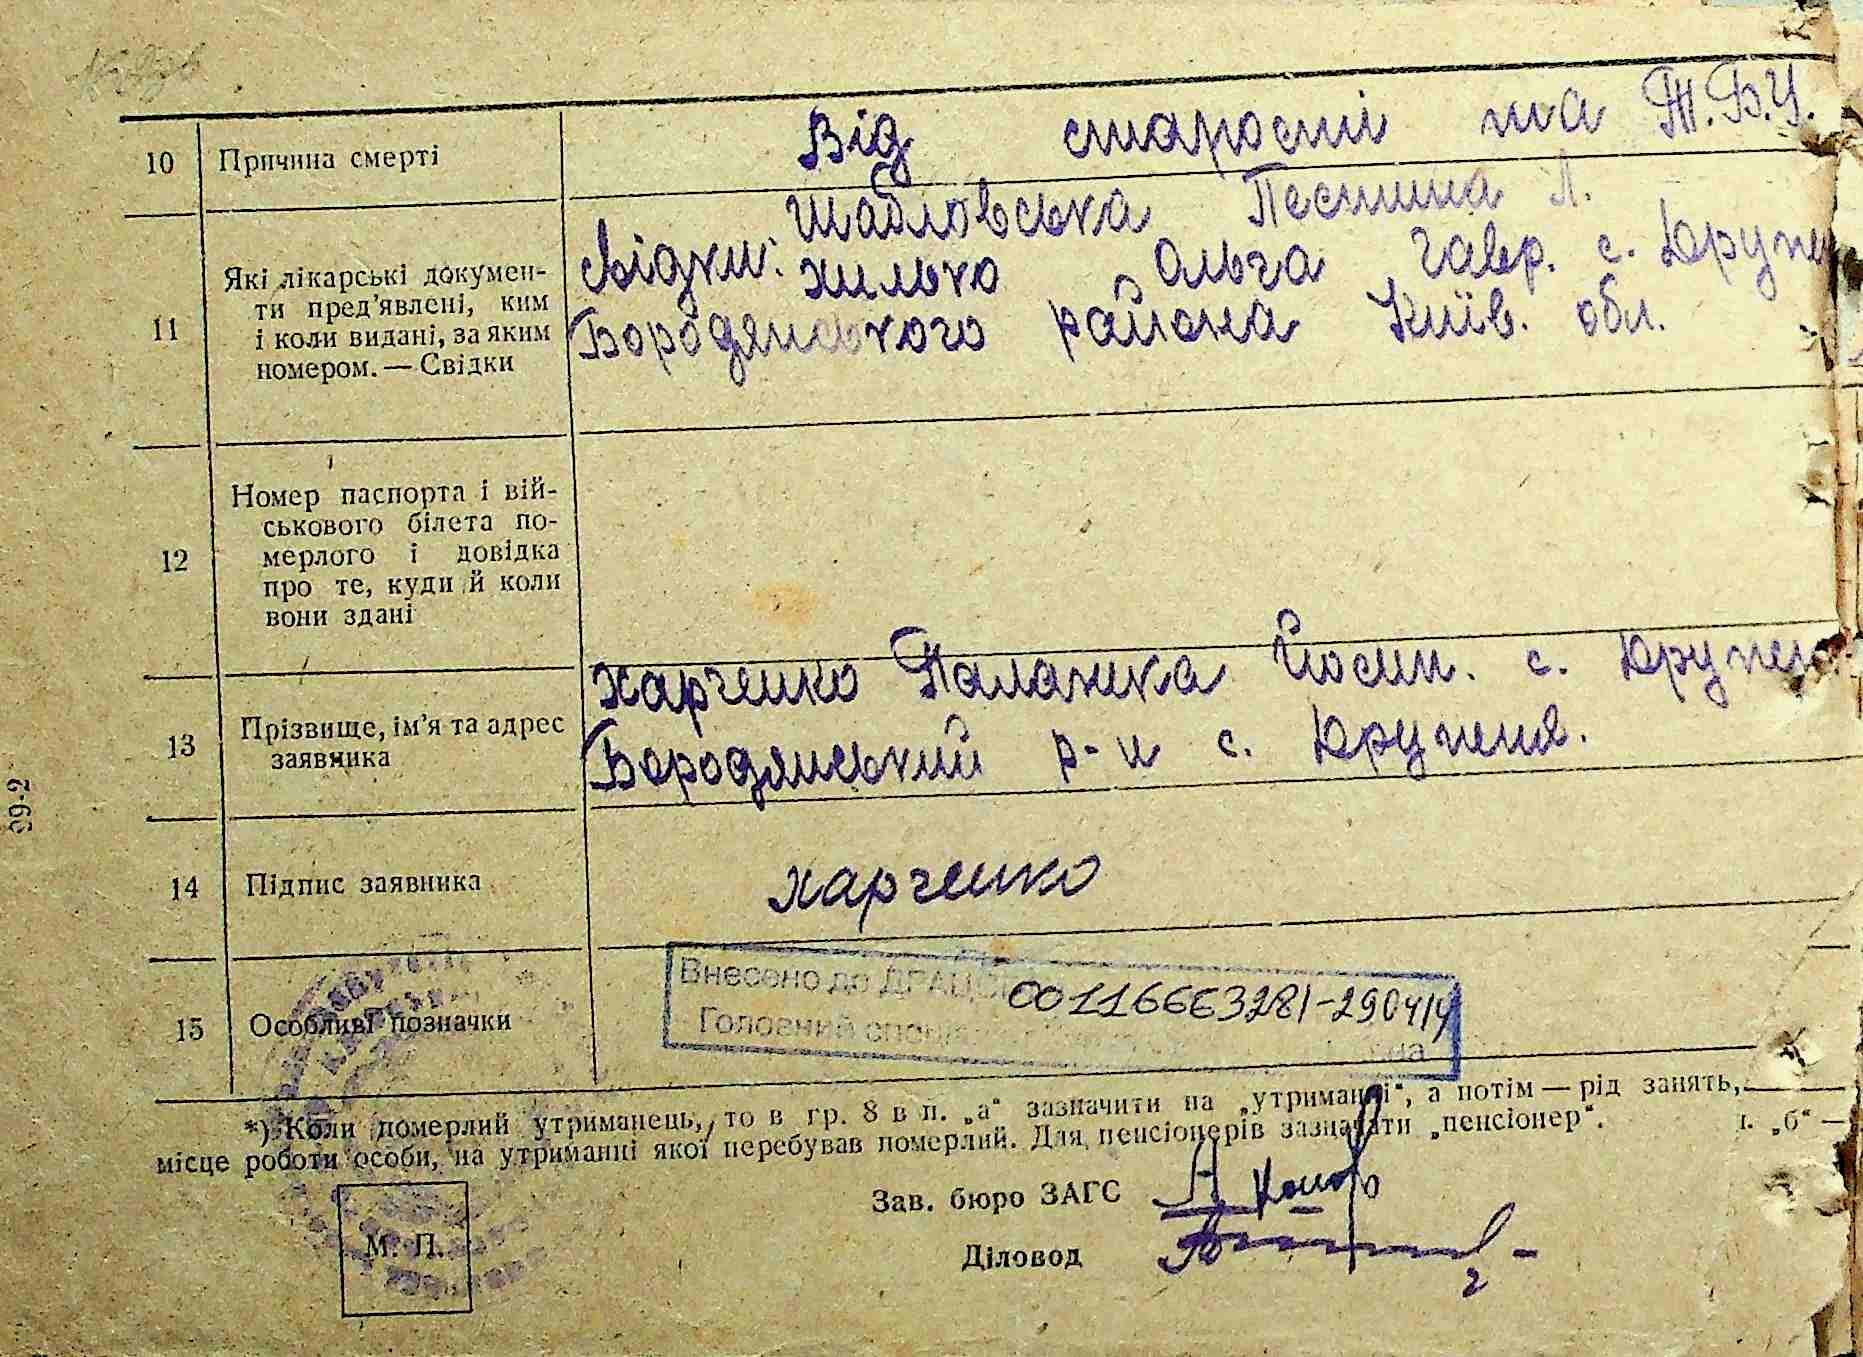 10 Причина смерті Від старости та Т.Б.Ц.
11 Які лікарські докумен-
ти пред'явлені, ким
і коли видані, за яким
номером. — Свідки
Шабловська Л.
Свідки: Хилько Ольга Гавр. с.
Бородянського района Київ. обл.
12 Номер паспорта і вій-
ськового білета по-
мерлого і довідка
про те, куди й коли
вони здані
13 Прізвище, ім'я та адрес
заявника
Харченко Палажка Йосип. с.
Бородянський р-н с.
14 Підпис заявника Харченко
15 Особливі позначки
Внесено до ДРАЦС 00116663281-290414
Головний
*) Коли померлий утриманець, то в гр. 8 в п. „а“ зазначити на „утриманні“, а потім — рід занять, „б“ —
місце роботи особи, на утриманні якої перебував померлий. Для пенсіонерів зазначати „пенсіонер“.
Зав. бюро ЗАГС
М. П.
Діловод
99-2